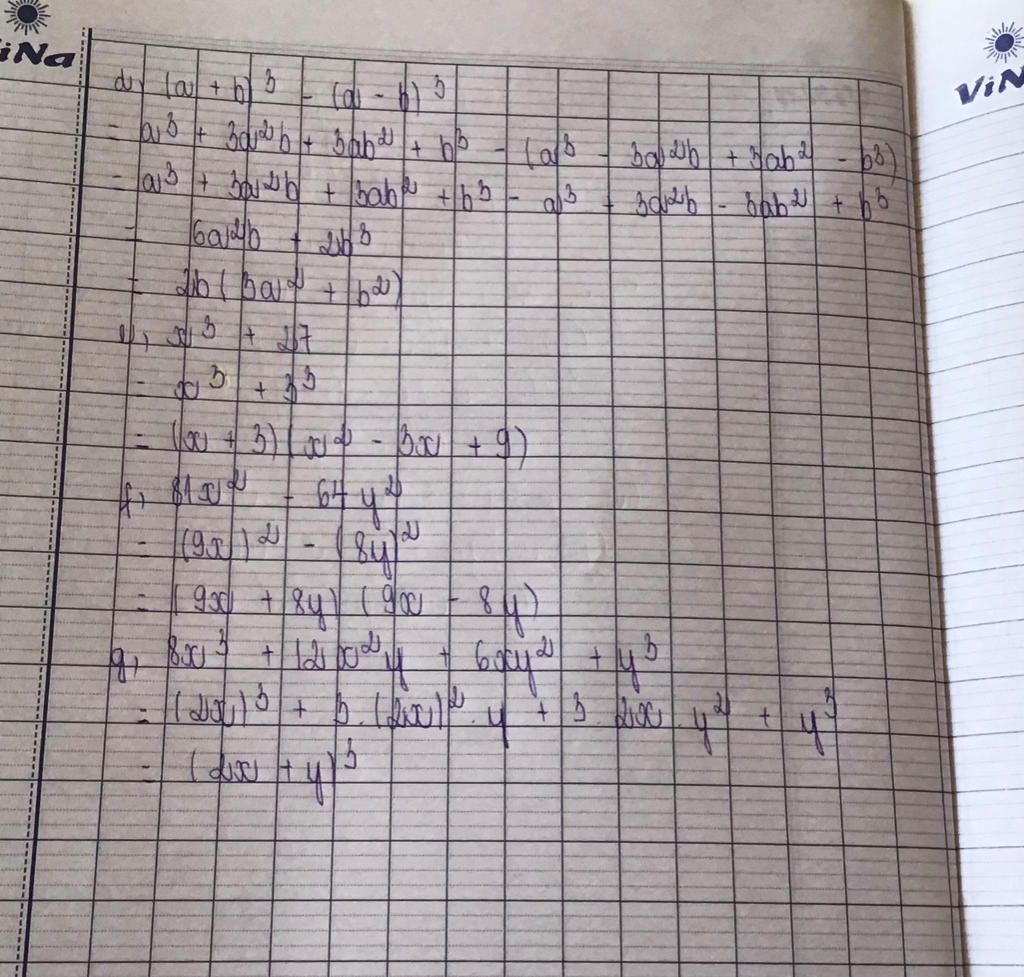 ViNa
ViN
d, (a + b)³ - (a - b)³
= a³ + 3a²b + 3ab² + b³ - (a³ - 3a²b + 3ab² - b³)
= a³ + 3a²b + 3ab² + b³ - a³ + 3a²b - 3ab² + b³
= 6a²b + 2b³
= 2b(3a² + b²)
e, x³ + 27
= x³ + 3³
= (x + 3)(x² - 3x + 9)
f, 81x² - 64y²
= (9x)² - (8y)²
= (9x + 8y)(9x - 8y)
g, 8x³ + 12x²y + 6xy² + y³
= (2x)³ + 3.(2x)².y + 3.2x.y² + y³
= (2x + y)³